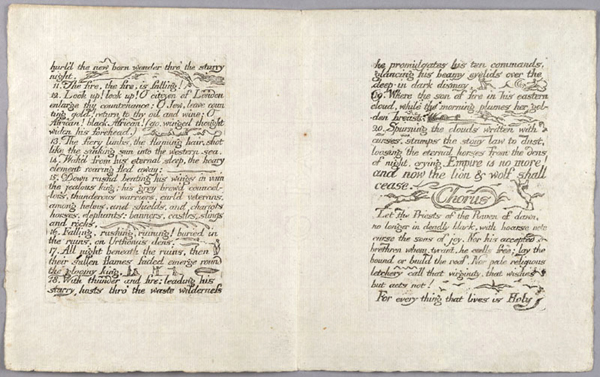 hurl'd the new born wonder thro' the starry
night.
11. The fire, the fire, is falling!
12. Look up! look up! O citizen of London
enlarge thy countenance; O Jew, leave coun
ting gold! return to thy oil and wine; O
African! black African! (go, winged thought
widen his forehead.)
13. The fiery limbs, the flaming hair, shot
like the sinking sun into the western sea.
14. Wak'd from his eternal sleep, the hoary
element roaring fled away:
15. Down rushd beating his wings in vain
the jealous king; his grey brow'd council-
lors, thunderous warriors, curl'd veterans,
among helms, and shields, and chariots
horses, elephants: banners, castles, slings
and rocks,
16. Falling, rushing, ruining! buried in
the ruins, on Urthona's dens.
17. All night beneath the ruins, then
their sullen flames faded emerge round
the gloomy king,
18. With thunder and fire: leading his
starry hosts thro' the waste wilderness
he promulgates his ten commands,
glancing his beamy eyelids over the
deep in dark dismay,
19. Where the son of fire in his eastern
cloud, while the morning plumes her gol-
den breast,
20. Spurning the clouds written with
curses, stamps the stony law to dust,
loosing the eternal horses from the dens
of night, crying Empire is no more!
and now the lion & wolf shall
cease.
Chorus
Let the Priests of the Raven of dawn,
no longer in deadly black, with hoarse note
curse the sons of joy. Nor his accepted
brethren whom, tyrant, he calls free; lay the
bound or build the roof. Nor pale religious
letchery call that virginity, that wishes
but acts not!
For every thing that lives is Holy